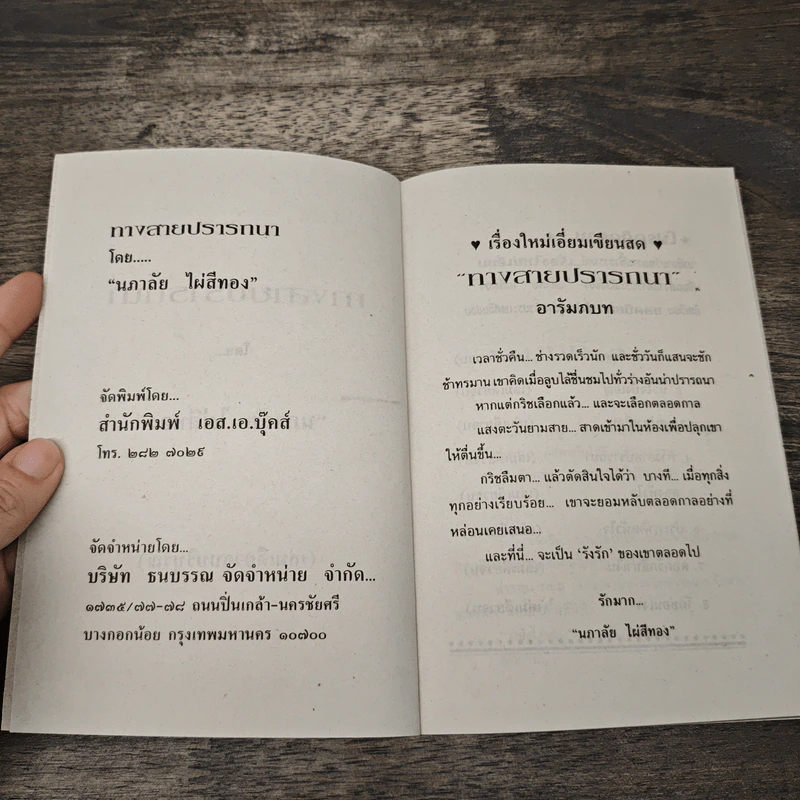 ทางสายปรารถนา
โดย.....
“นภาลัย ไผ่สีทอง”
จัดพิมพ์โดย...
สำนักพิมพ์ เอส.เอ.บุ๊คส์
โทร. ๒๘๒ ๗๐๒๙
จัดจำหน่ายโดย...
บริษัท ธนบรรณ จัดจำหน่าย จำกัด...
๑๗๓๕/๗๗-๗๘ ถนนปิ่นเกล้า-นครชัยศรี
บางกอกน้อย กรุงเทพมหานคร ๑๐๗๐๐
♥ เรื่องใหม่เอี่ยมเขียนสด ♥
“ทางสายปรารถนา”
อารัมภบท
เวลาชั่วคืน... ช่างรวดเร็วนัก และชั่ววันก็แสนจะชัก
ช้าทรมาน เขาคิดเมื่อลูบไล้ชื่นชมไปทั่วร่างอันน่าปรารถนา
หากแต่กริชเลือกแล้ว... และจะเลือกตลอดกาล
แสงตะวันยามสาย... สาดเข้ามาในห้องเพื่อปลุกเขา
ให้ตื่นขึ้น...
กริชลืมตา... แล้วตัดสินใจได้ว่า บางที... เมื่อทุกสิ่ง
ทุกอย่างเรียบร้อย... เขาจะยอมหลับตลอดกาลอย่างที่
หล่อนเคยเสนอ...
และที่นี่... จะเป็น ‘รังรัก’ ของเขาตลอดไป
รักมาก...
“นภาลัย ไผ่สีทอง”